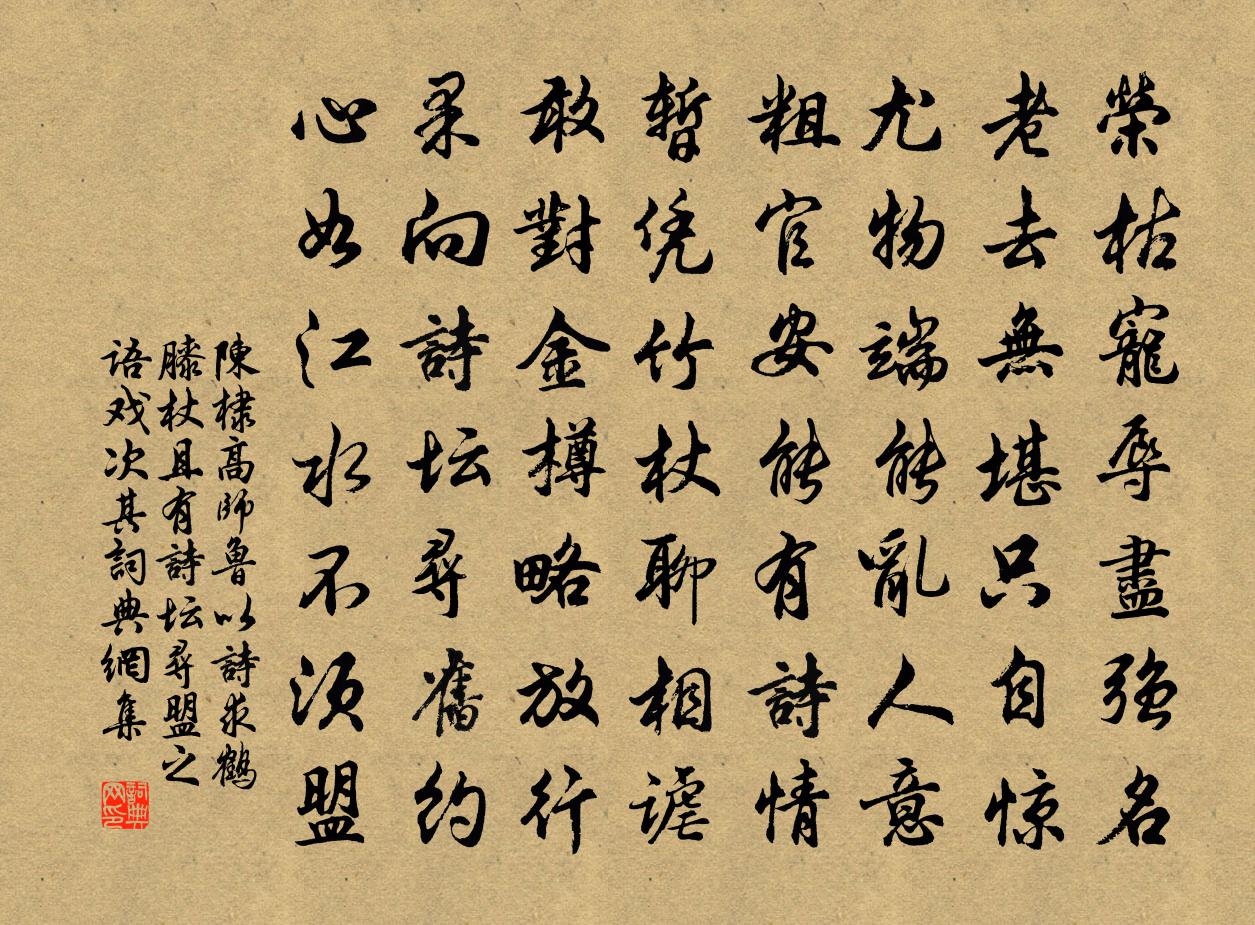 榮枯寵辱盡强名
老去無堪只自惊
尤物端能亂人意
粗官安能有詩情
暫凭竹杖聊相謔
敢對金樽略放行
果向詩坛尋舊約
心如江水不須盟
陳棣高師魯以詩求鶴
膝杖且有詩坛尋盟之
语戏次其詞典網集
詞典网印